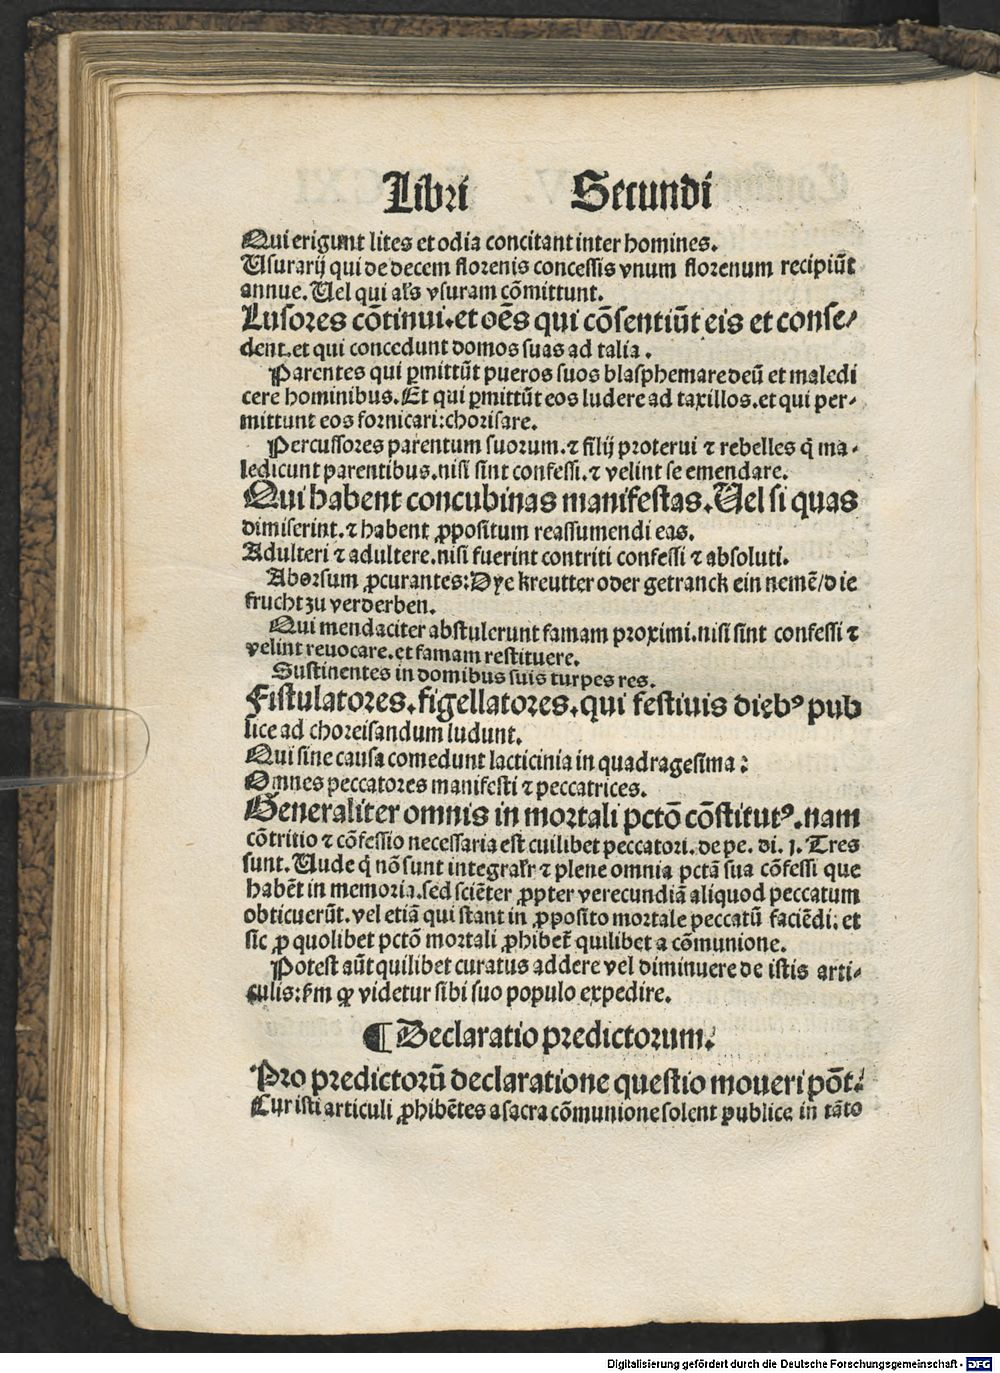 Libri Secundi
Qui erigunt lites et odia concitant inter homines.
Usurarij qui de decem florenis concessis vnum florenum recipiūt
annue. Uel qui al's vsuram cōmittunt.
Lusores cōtinui. et oēs qui cōsentiūt eis et conse/
dent. et qui concedunt domos suas ad talia.
Parentes qui ꝑmittūt pueros suos blasphemare deū et maledi
cere hominibus. Et qui ꝑmittūt eos ludere ad taxillos. et qui per-
mittunt eos fornicari: chorisare.
Percussores parentum suorum. ⁊ filij proterui ⁊ rebelles q̄ ma-
ledicunt parentibus. nisi sint confessi. ⁊ velint se emendare.
Qui habent concubinas manifestas. Uel si quas
dimiserint. ⁊ habent ꝓpositum reassumendi eas.
Adulteri ⁊ adultere. nisi fuerint contriti confessi ⁊ absoluti.
Aborsum ꝓcurantes: Dye kreutter oder getranck ein nemē/ die
frucht zu verderben.
Qui mendaciter abstulerunt famam proximi. nisi sint confessi ⁊
velint reuocare. et famam restituere.
Sustinentes in domibus suis turpes res.
Fistulatores. figellatores. qui festiuis diebꝰ pub
lice ad choreisandum ludunt.
Qui sine causa comedunt lacticinia in quadragesima:
Omnes peccatores manifesti ⁊ peccatrices.
Generaliter omnis in mortali pctō cōstitutꝰ. nam
cōtritio ⁊ cōfessio necessaria est cuilibet peccatori. de pe. di. j. Tres
sunt. Unde q̄ nō sunt integral'r ⁊ plene omnia pctā sua cōfessi que
habēt in memoria. sed sciēter ꝓpter verecundiā aliquod peccatum
obticuerūt. vel etiā qui stant in ꝓposito mortale peccatū faciēdi. et
sic ꝓ quolibet pctō mortali ꝓhibet̄ quilibet a cōmunione.
Potest aūt quilibet curatus addere vel diminuere de istis arti-
culis: fm ꝙ videtur sibi suo populo expedire.
¶ Declaratio predictorum.
Pro predictorū declaratione questio moueri pōt.
Cur isti articuli ꝓhibētes a sacra cōmunione solent publice in tāto
Digitalisierung gefördert durch die Deutsche Forschungsgemeinschaft - DFG